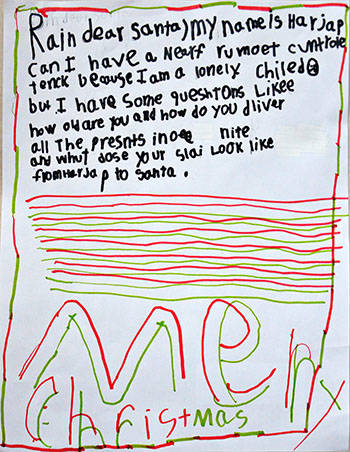 Rain dear santa) my name is Harjap
can I have a Nearf rumoet cuntrole
terck because I am a lonely chiled
but I have some queshtons Likee
how old are you and how do you dliver
all The Presnts in one nite
and whut dose your slai Look like
from Harjap to Santa.
Merry
Christmas